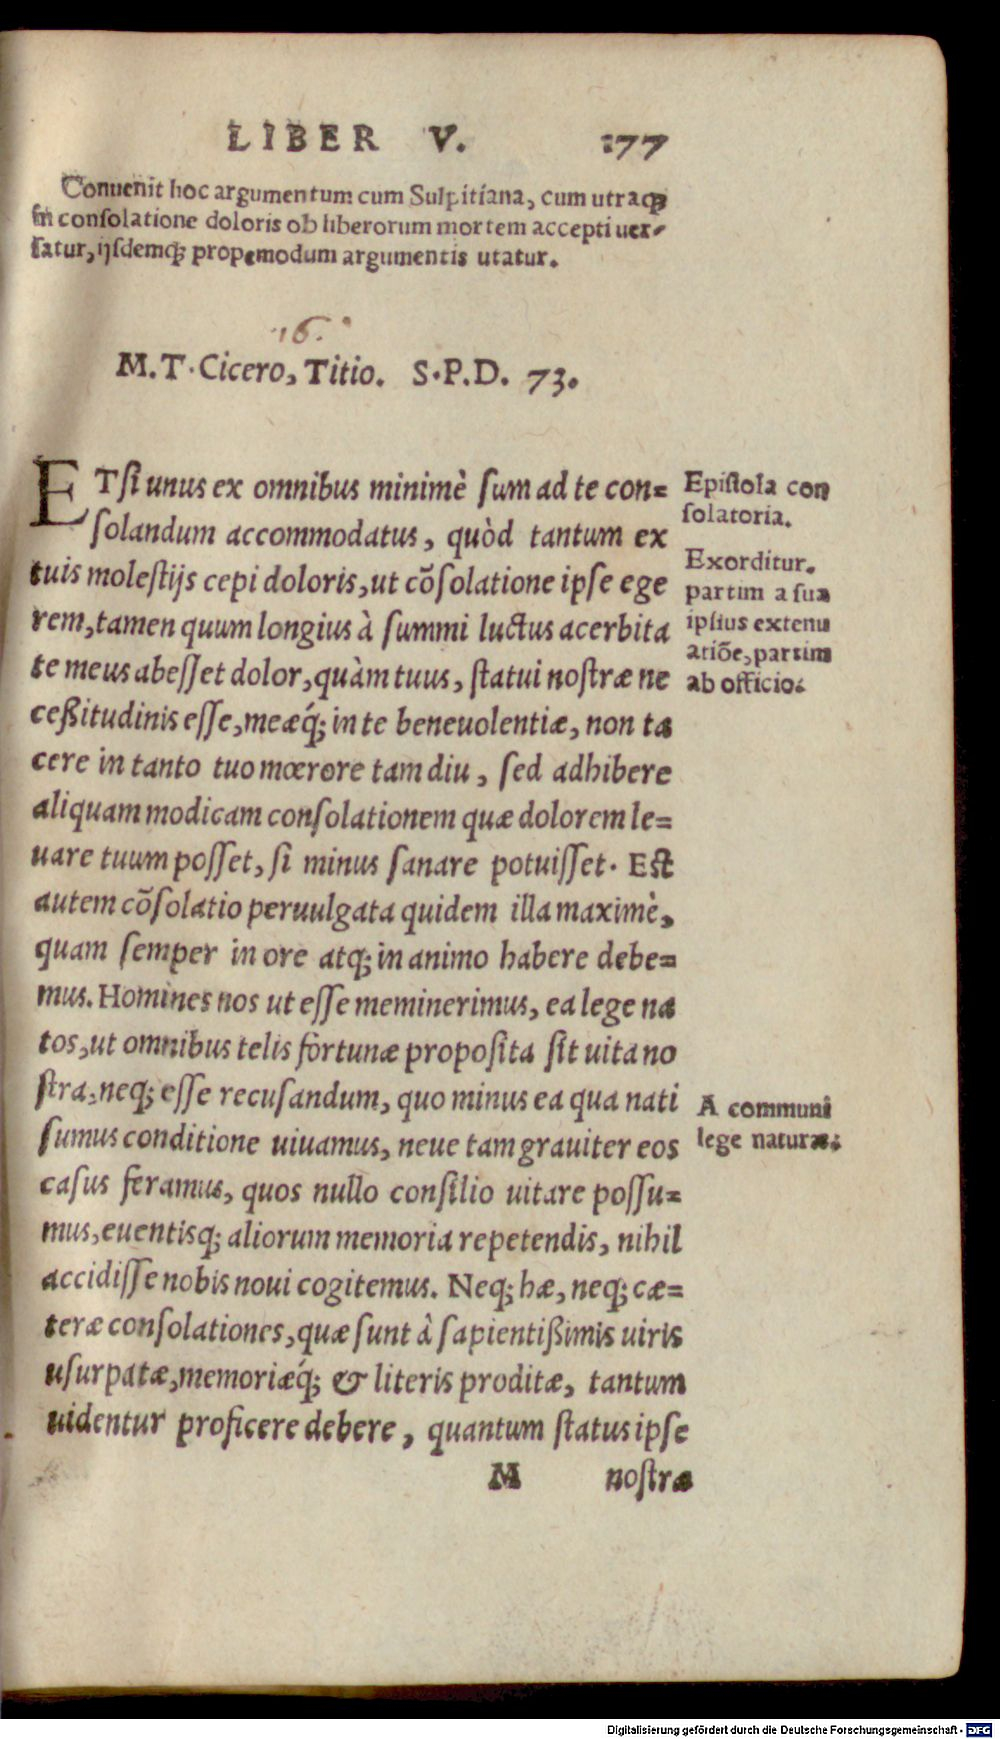 LIBER V. 177
Conuenit hoc argumentum cum Sulpitiana, cum utraq;
in consolatione doloris ob liberorum mortem accepti uer-
satur, ijsdemq; propemodum argumentis utatur.
16.
M.T. Cicero, Titio. S.P.D. 73.
ETsi unus ex omnibus minimè sum ad te con=
solandum accommodatus, quòd tantum ex
tuis molestijs cepi doloris, ut cõsolatione ipse ege
rem, tamen quum longius à summi luctus acerbita
te meus abesset dolor, quàm tuus, statui nostræ ne
ceßitudinis esse, meæq́; in te beneuolentiæ, non ta
cere in tanto tuo mœrore tam diu, sed adhibere
aliquam modicam consolationem quæ dolorem le=
uare tuum posset, si minus sanare potuisset. Est
autem cõsolatio peruulgata quidem illa maximè,
quam semper in ore atq; in animo habere debe=
mus. Homines nos ut esse meminerimus, ea lege na
tos, ut omnibus telis fortunæ proposita sit uita no
stra, neq; esse recusandum, quo minus ea qua nati
sumus conditione uiuamus, neue tam grauiter eos
casus feramus, quos nullo consilio uitare possu=
mus, euentisq; aliorum memoria repetendis, nihil
accidisse nobis noui cogitemus. Neq; hæ, neq; cæ=
teræ consolationes, quæ sunt à sapientißimis uiris
usurpatæ, memoriæq́; & literis proditæ, tantum
uidentur proficere debere, quantum status ipse
M nostræ
Epistola con
solatoria.
Exorditur.
partim a sua
ipsius extenu
atiõe, partim
ab officio.
A communi
lege naturæ.
Digitalisierung gefördert durch die Deutsche Forschungsgemeinschaft - DFG